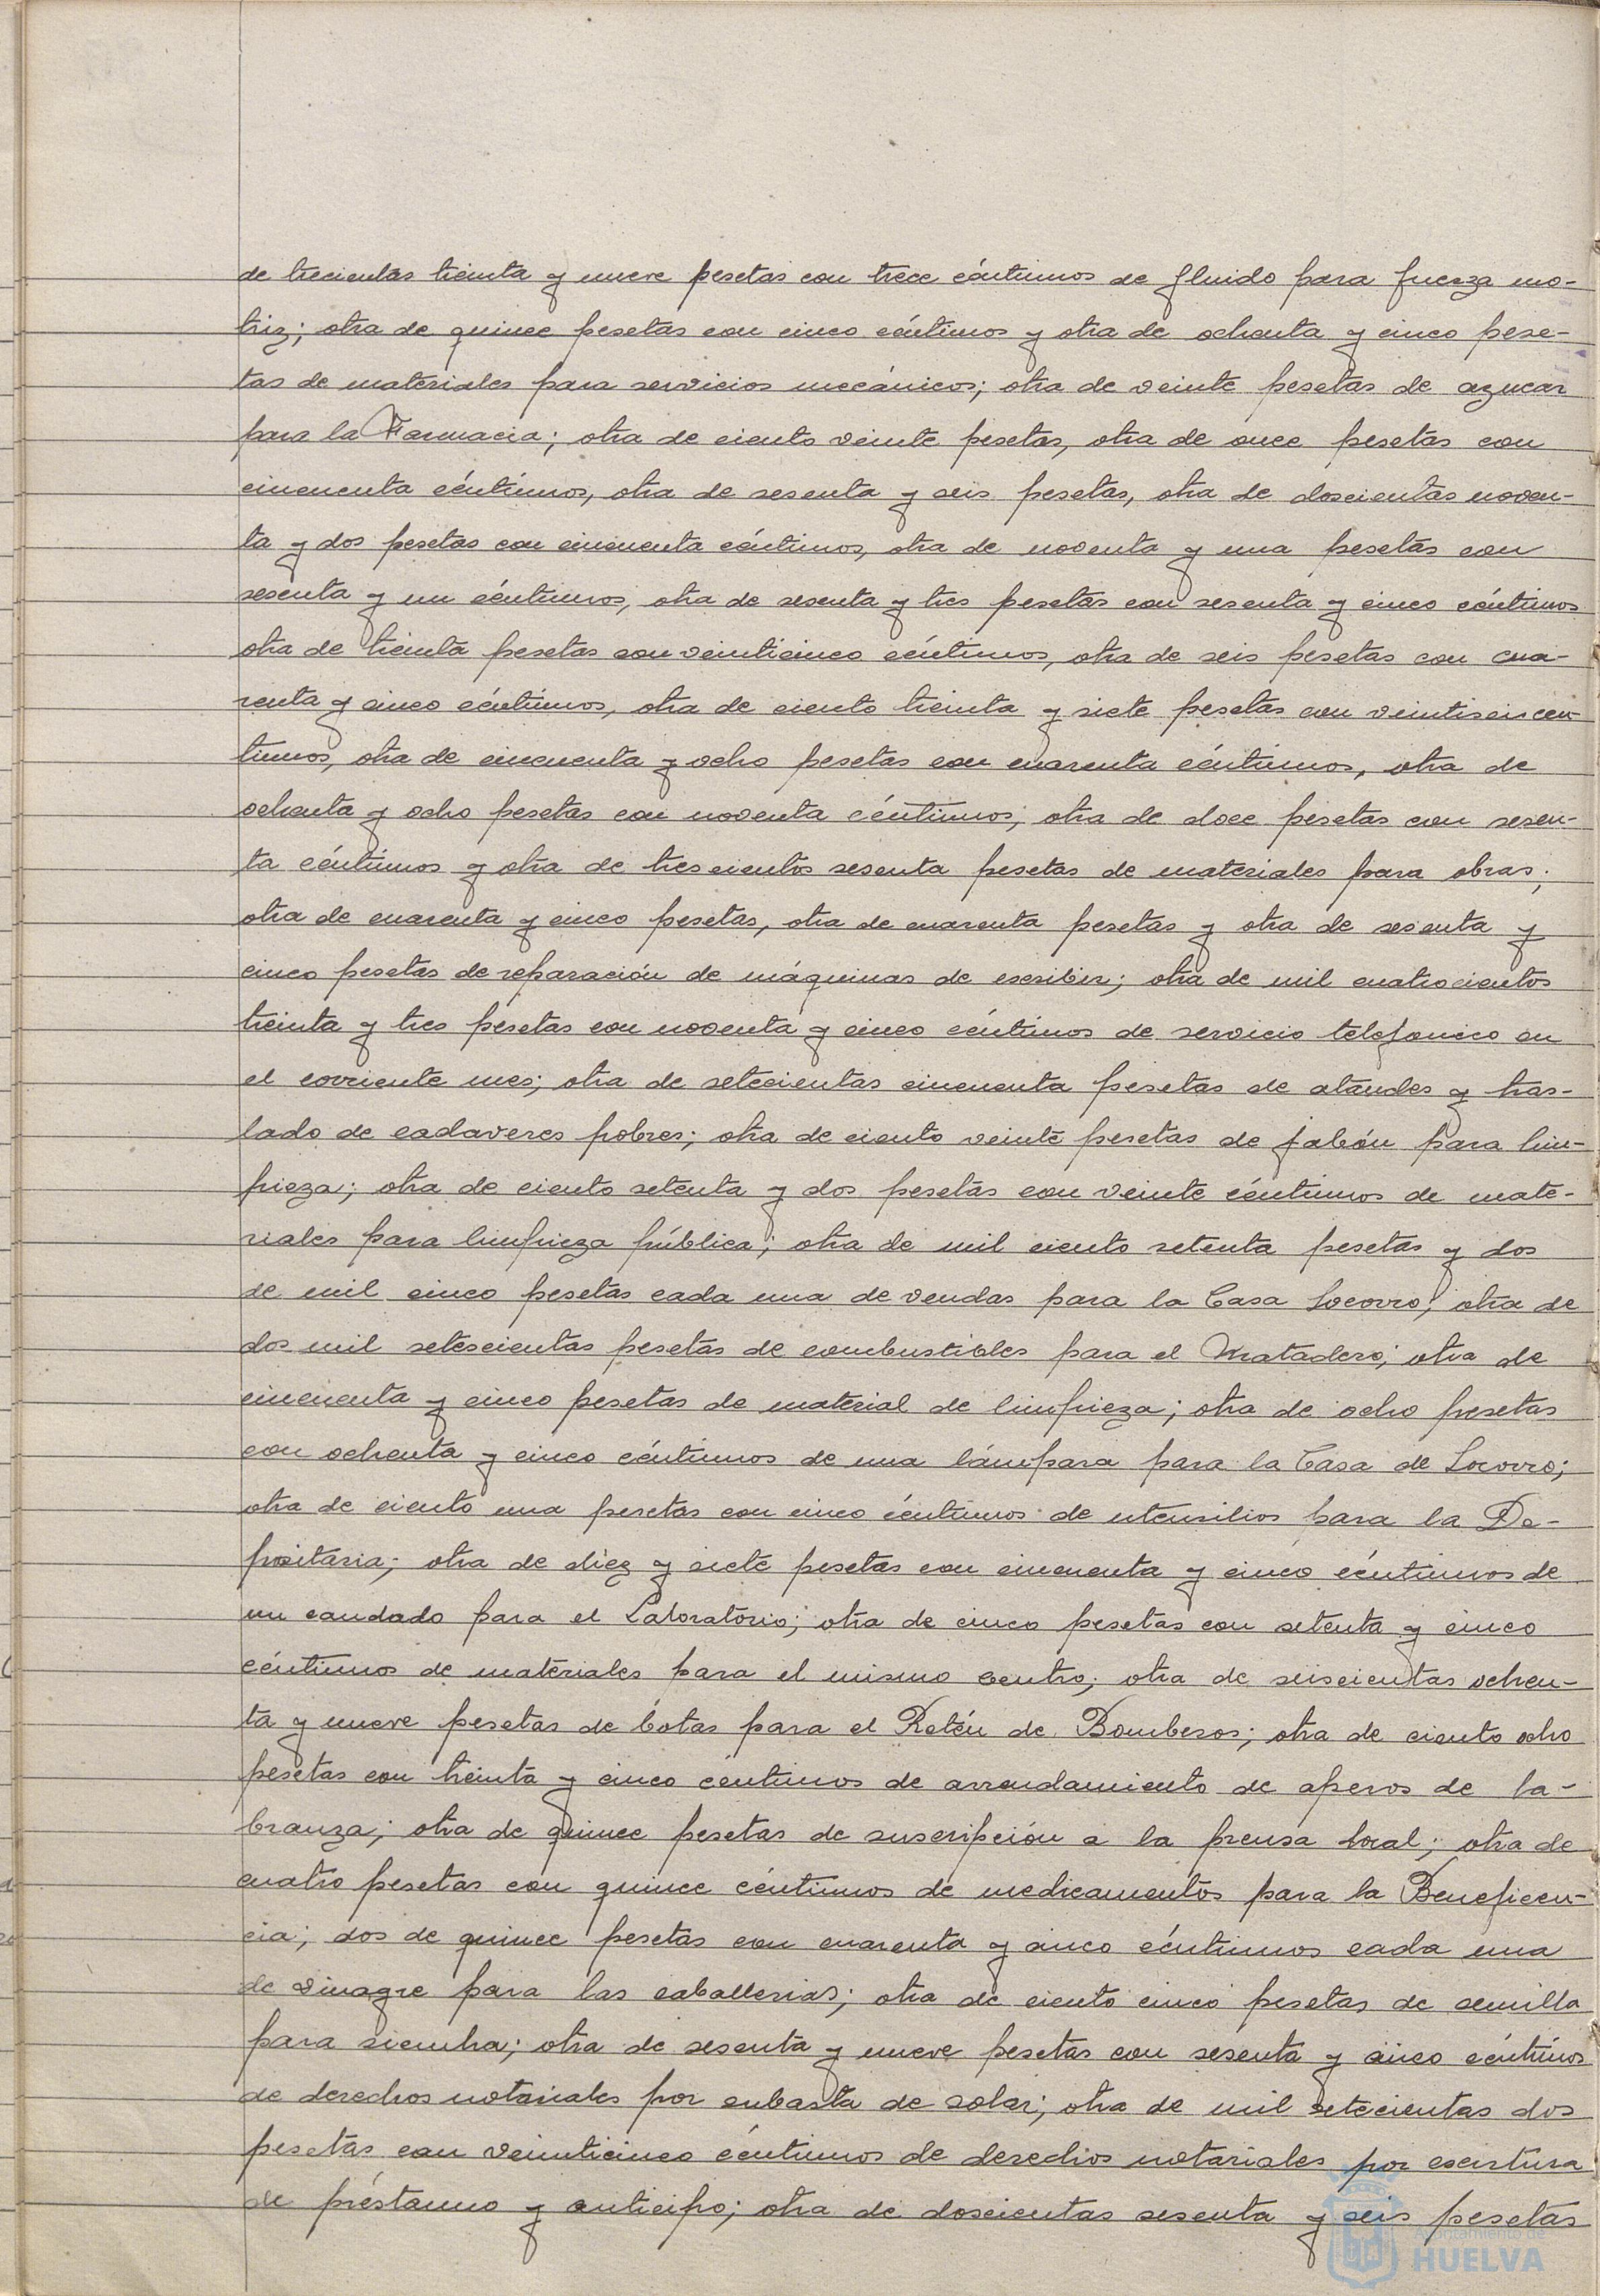 de trecientas treinta y nueve pesetas con trece céntimos de fluido para fuerza mo-
triz; otra de quince pesetas con cinco céntimos y otra de ochenta y cinco pese-
tas de materiales para servicios mecánicos; otra de veinte pesetas de azucar
para la Farmacia; otra de ciento veinte pesetas, otra de once pesetas con
cincuenta céntimos, otra de sesenta y seis pesetas, otra de doscientas noven-
ta y dos pesetas con cincuenta céntimos, otra de noventa y una pesetas con
sesenta y un céntimos, otra de sesenta y tres pesetas con sesenta y cinco céntimos
otra de treinta pesetas con veinticinco céntimos, otra de seis pesetas con cua-
renta y cinco céntimos, otra de ciento treinta y siete pesetas con veintiseis cen
timos, otra de cincuenta y ocho pesetas con cuarenta céntimos, otra de
ochenta y ocho pesetas con noventa céntimos; otra de doce pesetas con sesen-
ta céntimos y otra de trescientos sesenta pesetas de materiales para obras;
otra de cuarenta y cinco pesetas, otra de cuarenta pesetas y otra de sesenta y
cinco pesetas de reparación de máquinas de escribir; otra de mil cuatrocientos
treinta y tres pesetas con noventa y cinco céntimos de servicio telefonico en
el corriente mes; otra de setecientas cincuenta pesetas de ataudes y tras-
lado de cadaveres pobres; otra de ciento veinte pesetas de jabón para lim-
pieza; otra de ciento setenta y dos pesetas con veinte céntimos de mate-
riales para limpieza pública; otra de mil ciento setenta pesetas y dos
de mil cinco pesetas cada una de vendas para la Casa Socorro; otra de
dos mil setescientas pesetas de combustibles para el Matadero; otra de
cincuenta y cinco pesetas de material de limpieza; otra de ocho pesetas
con ochenta y cinco céntimos de una lámpara para la Casa de Socorro;
otra de ciento una pesetas con cinco céntimos de utensilios para la De-
positaria; otra de diez y siete pesetas con cincuenta y cinco céntimos de
un candado para el Laboratorio; otra de cinco pesetas con setenta y cinco
céntimos de materiales para el mismo centro; otra de seiscientas ochen-
ta y nueve pesetas de botas para el Retén de Bomberos; otra de ciento ocho
pesetas con treinta y cinco céntimos de arrendamiento de aperos de la-
branza; otra de quince pesetas de suscripción a la prensa local; otra de
cuatro pesetas con quince céntimos de medicamentos para la Beneficen-
cia; dos de quince pesetas con cuarenta y cinco céntimos cada una
de vinagre para las caballerias; otra de ciento cinco pesetas de semilla
para siembra; otra de sesenta y nueve pesetas con sesenta y cinco céntimos
de derechos notariales por subasta de solar; otra de mil setecientas dos
pesetas con veinticinco céntimos de derechos notariales por escritura
de préstamo y anticipo; otra de doscientas sesenta y seis pesetas
Ayuntamiento de
HUELVA